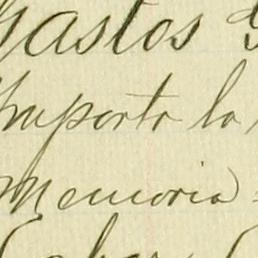 Gastos
Importa la
memoria